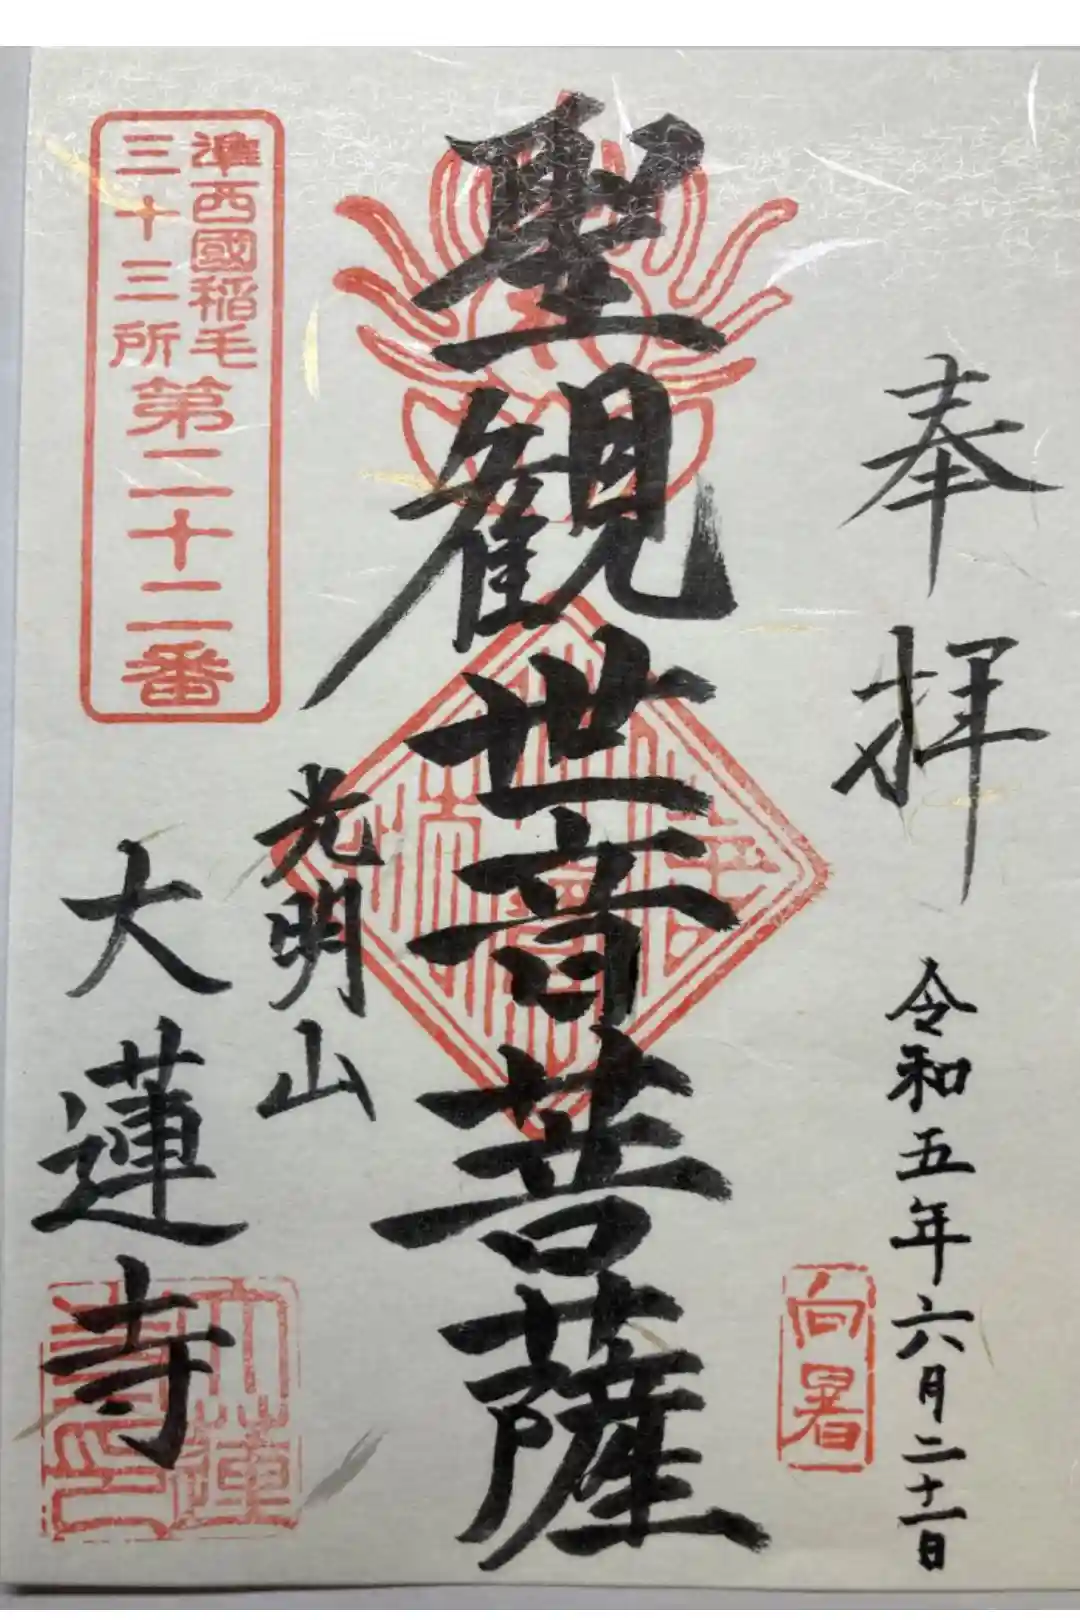 奉拝
令和五年六月二十一日
向暑
聖観世音菩薩
準西國稲毛
三十三所
第二十二番
光明山
大蓮寺
大蓮
寺印